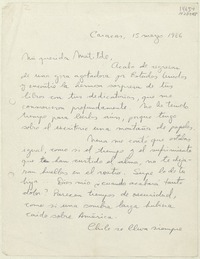 Caracas, 15 marzo 1966
Mi querida Matilde,
Acabo de regresar
de una gira agotadora por Estados Unidos
y encontré la hermosa sorpresa de tus
libros con tus dedicatorias, que me
conmovieron profundamente. No he tenido
tiempo para leerlos aún, porque tengo
sobre el escritorio una montaña de papeles,
me contó que estás
igual, como si el tiempo y el sufrimiento
que te han el alma, no te deja-
ran huellas en el rostro. Simple lo de la
hija. Dios mío ¿cuándo acabará tanto
dolor? Parecen tiempos de oscuridad,
como si una sombra larga hubiera
caído sobre América.
Chile se lleva siempre